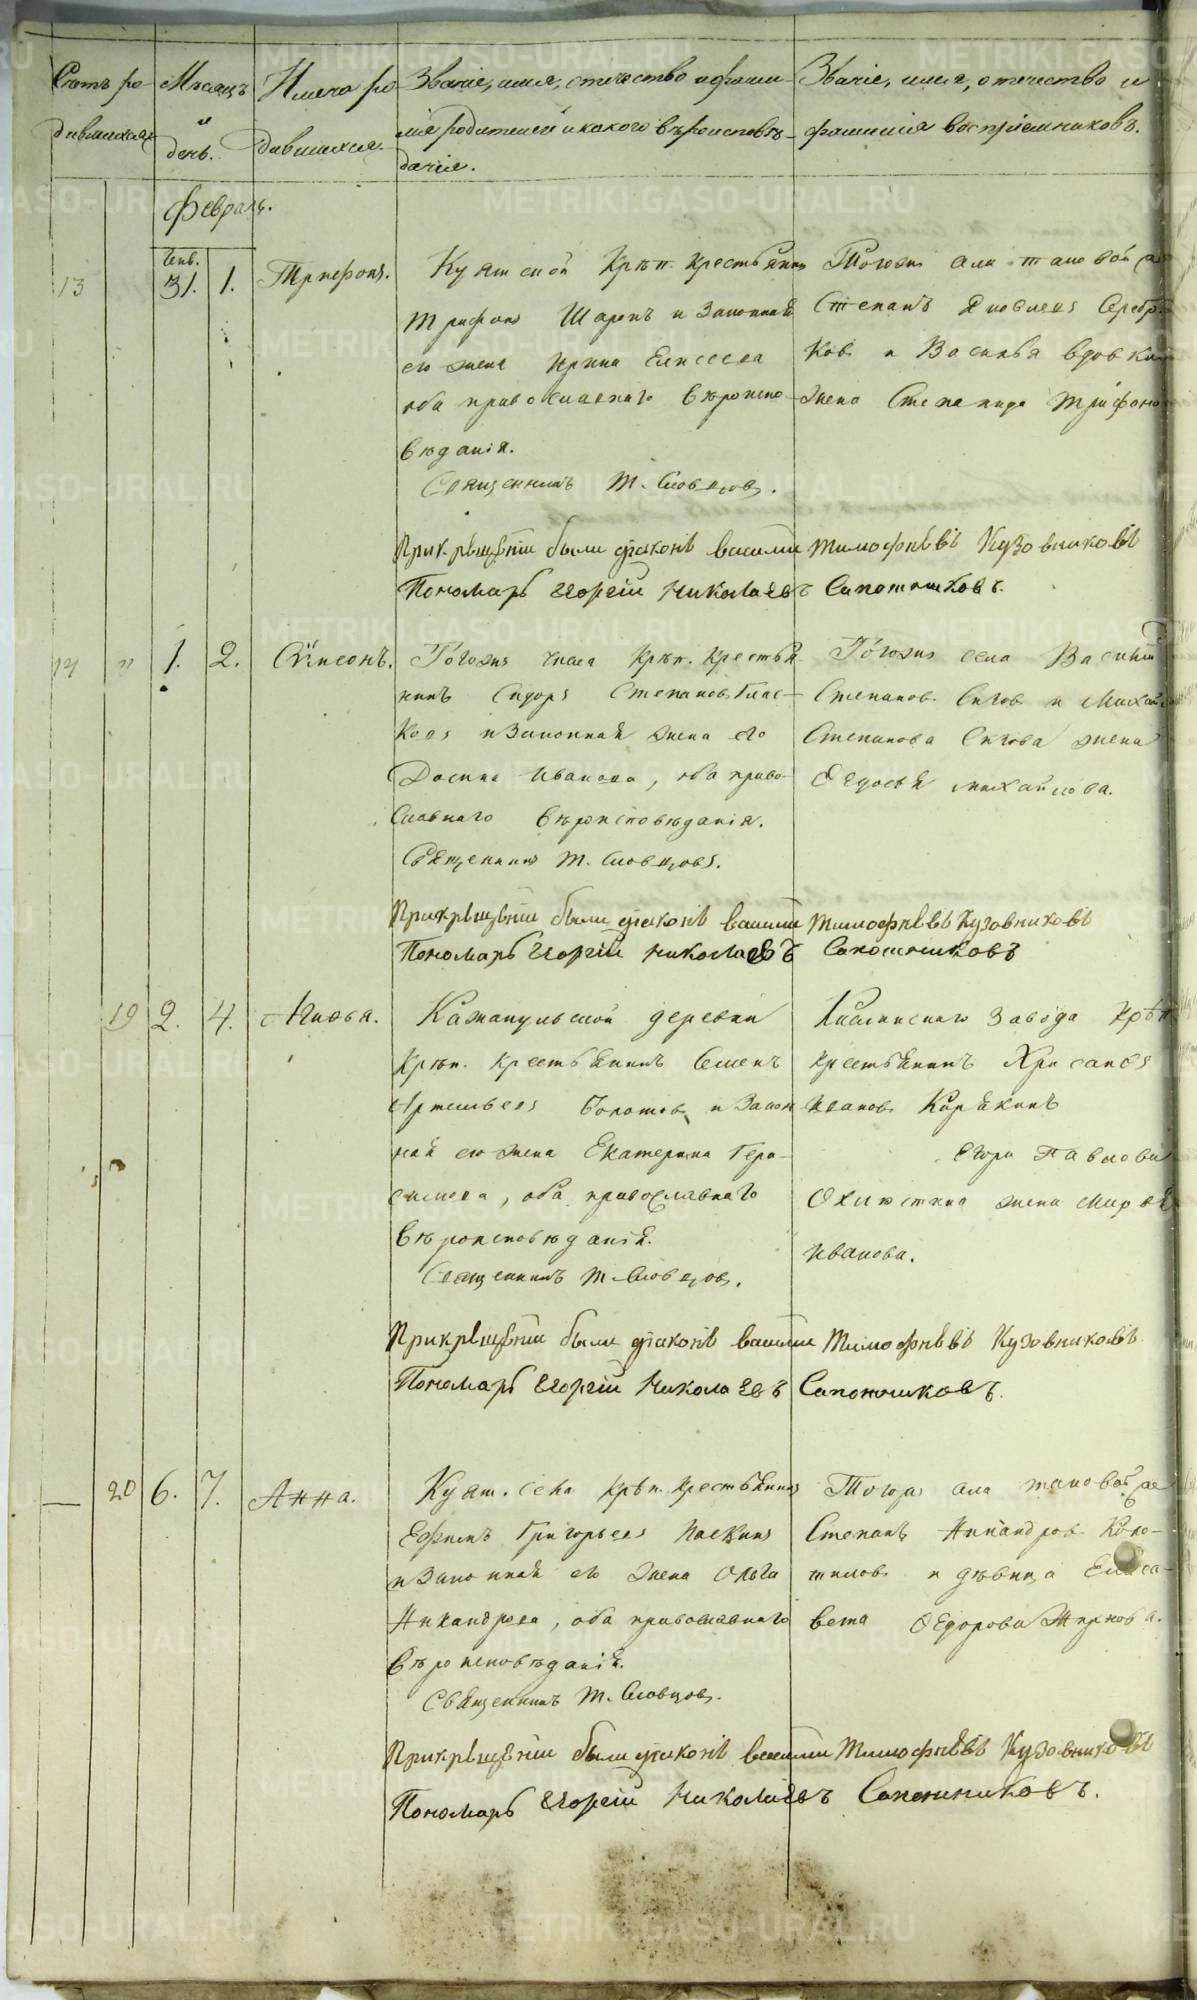 Счетъ ро-
дившихся
Месяцъ
и
день.
Имена ро
дившихся.
Званіе, имя, отечество и фами-
лія родителей и какого вѣроисповѣ-
данія.
Званіе, имя, отечество и
фамилія воспріемниковъ.
Февраль.
Генв.
13
31. 1. Трифонъ.
Куяшской Крѣп. крестьянинъ
Трифонъ Шаронъ и законная
его жена Ирина Елисеева
оба православнаго вѣроиспо-
вѣданія.
Священникъ Т. Словцовъ.
Тогожъ
Степанъ Яковлевъ
ковъ и Василья вдовкина
жена Степанида Трифоно
При крещеніи были діаконъ Василій Тимофѣевъ Кузовниковъ
Пономарь Георгій Николаевъ Сапожниковъ.
14 " 1. 2. Сѵмеонъ.
Тогожъ села Крѣп. крестья
нинъ Сидоръ Степановъ Глас-
ковъ и законная жена его
Домна Иванова, оба право-
славнаго вѣроисповѣданія.
Священникъ Т. Словцовъ.
Тогожъ села Василій
Степановъ Сиговъ и Михай
Степанова Сигова жена
Ѳедосья Михайлова.
При крещеніи были діаконъ Василій Тимофѣевъ Кузовниковъ
Пономарь Георгій Николаевъ Сапожниковъ
19 2. 4. Агаѳья.
деревни
Крѣп. крестьянинъ Семенъ
Артемьевъ Болотовъ и закон
ная его жена Екатерина Гера-
симова, оба православнаго
вѣроисповѣданія.
Священникъ Т. Словцовъ.
Каслинскаго завода Крѣп
крестьянинъ Хрисанѳъ
Ивановъ Карякинъ
Егора Павлова
Охлюстина жена Марѳа
Иванова.
При крещеніи были діаконъ Василій Тимофѣевъ Кузовниковъ
Пономарь Георгій Николаевъ Сапожниковъ.
— 20 6. 7. Анна.
Куяш. села Крѣп. крестьянинъ
Ефимъ Григорьевъ Паскинъ
и законная его жена Ольга
Никандрова, оба православнаго
вѣроисповѣданія.
Священникъ Т. Словцовъ.
Тогожъ
Степанъ Никандровъ Коро-
тиловъ и дѣвица Елиса-
вета Ѳедорова Жирнова.
При крещеніи были діаконъ Василій Тимофѣевъ Кузовниковъ
Пономарь Георгій Николаевъ Сапожниковъ.
METRIKI.GASO-URAL.RU